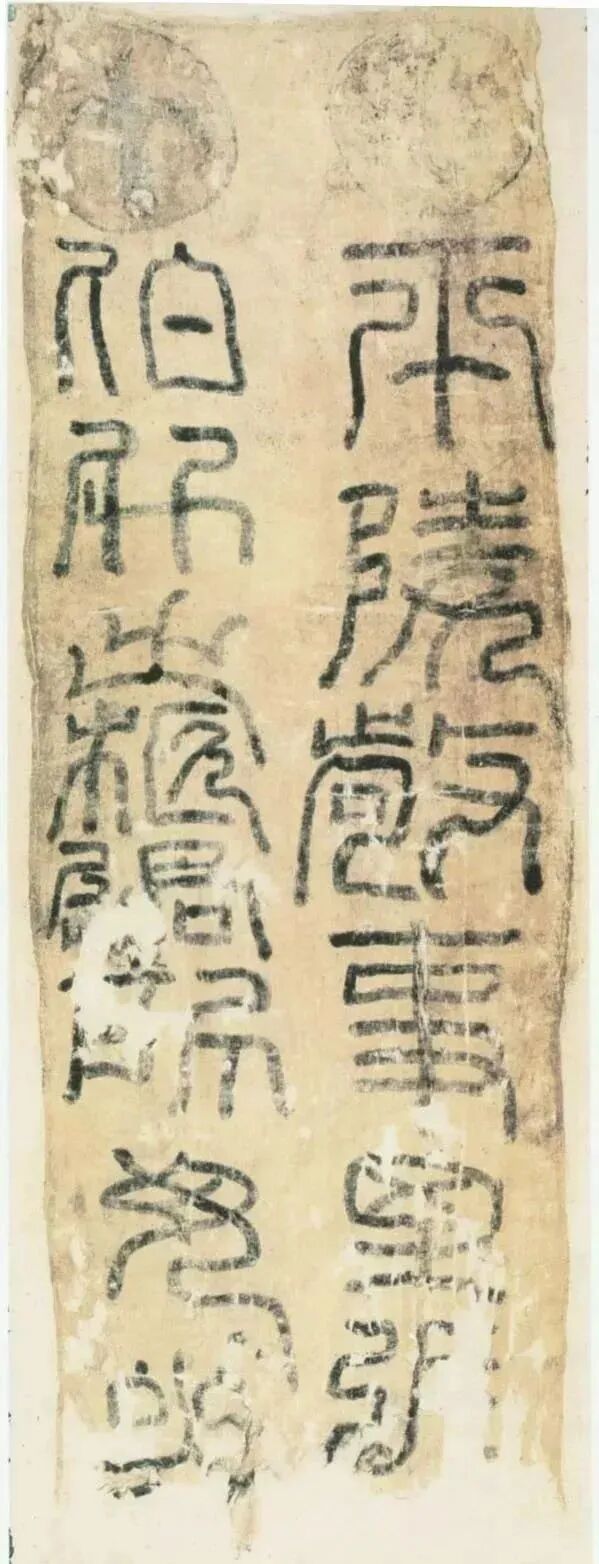 平陵敬事里張
伯升之柩過所毋哭